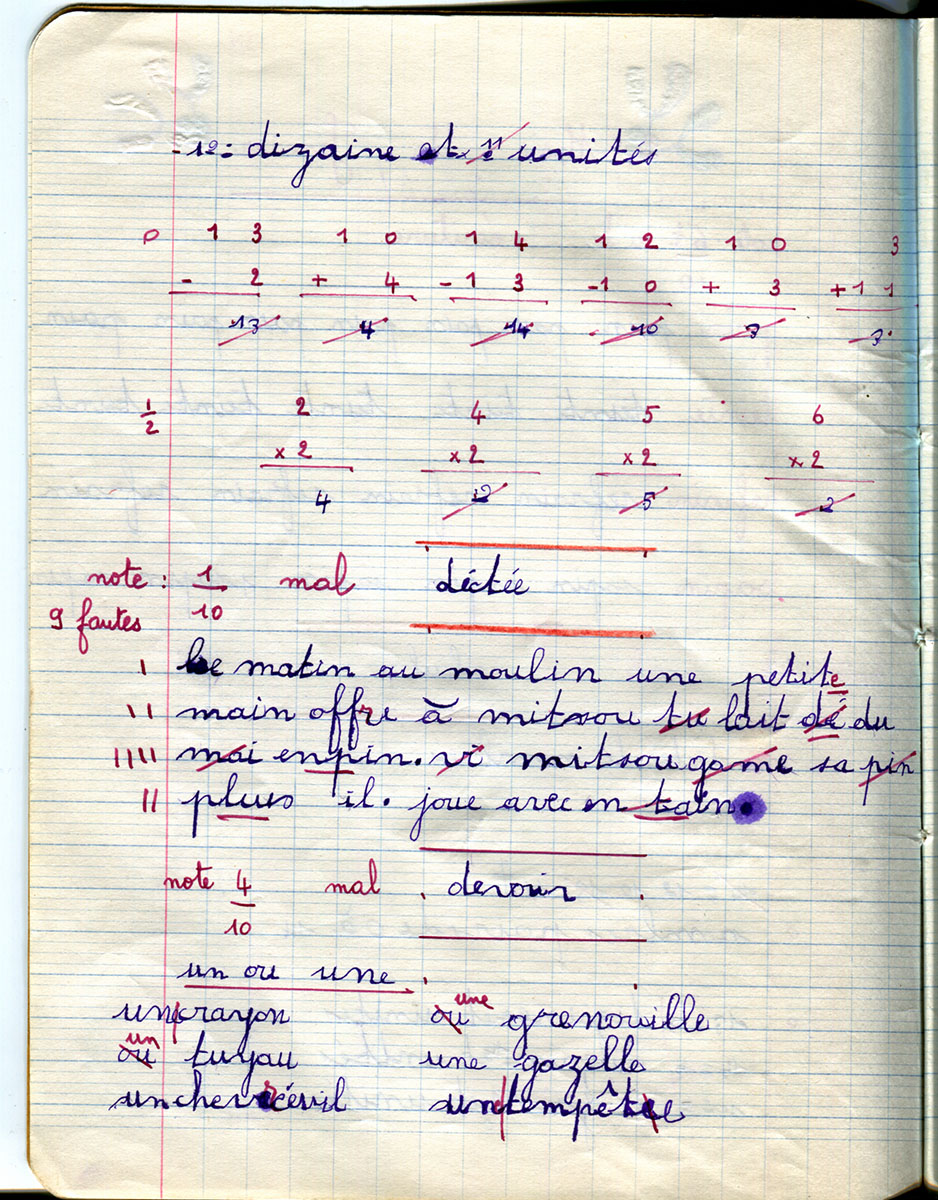 12= dizaine et 11 unités
0 1 3 1 0 1 4 1 2 1 0 3
- 2 + 4 -1 3 -1 0 + 3 +1 1
13 4 14 10 3 3
1/2 2 4 5 6
x2 x2 x2 x2
4 12 5 2
note : 1/10 mal dictée
9 fautes
le matin au moulin une petite
main offre à mitsou tu lait dé du
mai enpin. vi mitsou game sa pin
plus il. joue avec en tain.
note 4/10 mal devoir
un ou une
un crayon ou une grenouille
ou un tuyau une gazelle
un chevréuil une tempête